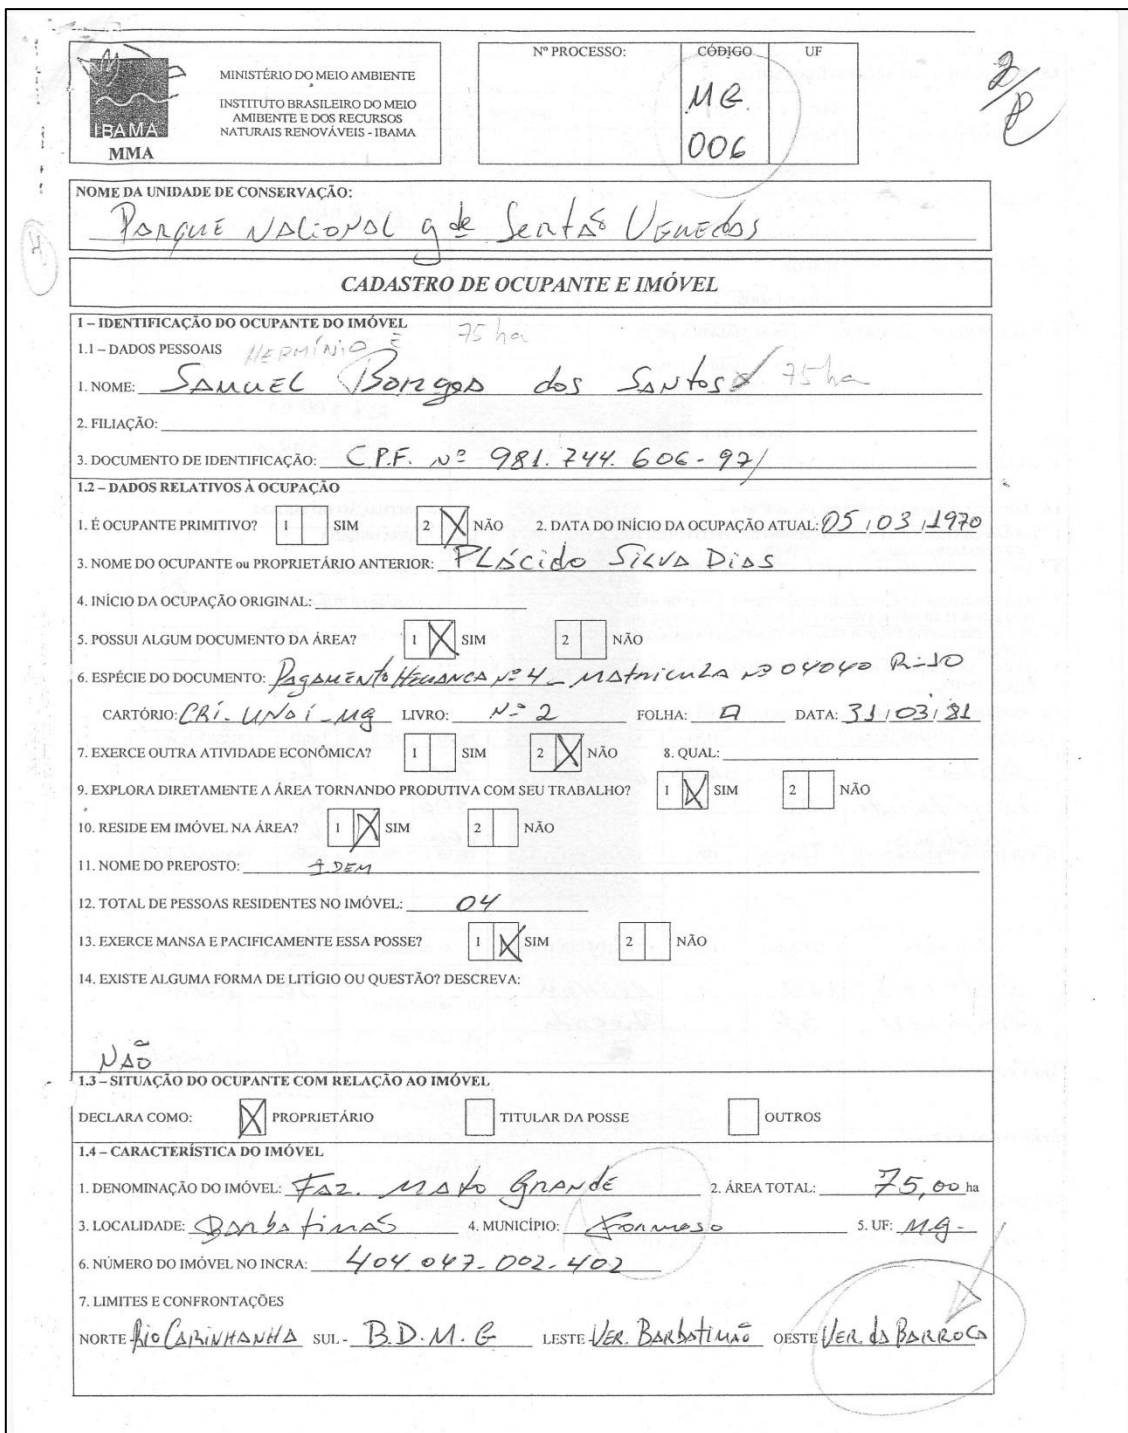 IBAMA
MMA
MINISTÉRIO DO MEIO AMBIENTE
INSTITUTO BRASILEIRO DO MEIO
AMIBENTE E DOS RECURSOS
NATURAIS RENOVÁVEIS - IBAMA
Nº PROCESSO: CÓDIGO UF
MG.
006
2/
NOME DA UNIDADE DE CONSERVAÇÃO:
PARQUE NACIONAL g de Sertão Veredas
CADASTRO DE OCUPANTE E IMÓVEL
1 – IDENTIFICAÇÃO DO OCUPANTE DO IMÓVEL 75 ha
1.1 – DADOS PESSOAIS HERMÍNIO E
1. NOME: SAMUEL Borges dos Santos 75 ha
2. FILIAÇÃO:
3. DOCUMENTO DE IDENTIFICAÇÃO: C.P.F. Nº 981.744.606-97/
1.2 – DADOS RELATIVOS À OCUPAÇÃO
1. É OCUPANTE PRIMITIVO? 1 SIM 2 X NÃO 2. DATA DO INÍCIO DA OCUPAÇÃO ATUAL: 05,03,1970
3. NOME DO OCUPANTE ou PROPRIETÁRIO ANTERIOR: PLÁcido SILVA DIAS
4. INÍCIO DA OCUPAÇÃO ORIGINAL:
5. POSSUI ALGUM DOCUMENTO DA ÁREA? 1 X SIM 2 NÃO
6. ESPÉCIE DO DOCUMENTO: PAGAMENTO HERANCA Nº 4 - MAtricula Nº 04040 R-10
CARTÓRIO: CRI. UNAÍ - MG LIVRO: Nº 2 FOLHA: DATA: 31,03,81
7. EXERCE OUTRA ATIVIDADE ECONÔMICA? 1 SIM 2 X NÃO 8. QUAL:
9. EXPLORA DIRETAMENTE A ÁREA TORNANDO PRODUTIVA COM SEU TRABALHO? 1 X SIM 2 NÃO
10. RESIDE EM IMÓVEL NA ÁREA? 1 X SIM 2 NÃO
11. NOME DO PREPOSTO: IDEM
12. TOTAL DE PESSOAS RESIDENTES NO IMÓVEL: 04
13. EXERCE MANSA E PACIFICAMENTE ESSA POSSE? 1 X SIM 2 NÃO
14. EXISTE ALGUMA FORMA DE LITÍGIO OU QUESTÃO? DESCREVA:
NÃO
1.3 – SITUAÇÃO DO OCUPANTE COM RELAÇÃO AO IMÓVEL
DECLARA COMO: X PROPRIETÁRIO TITULAR DA POSSE OUTROS
1.4 – CARACTERÍSTICA DO IMÓVEL
1. DENOMINAÇÃO DO IMÓVEL: FAZ. MATO GRANDE 2. ÁREA TOTAL: 75,00 ha
3. LOCALIDADE: Barbatimão 4. MUNICÍPIO: Formoso 5. UF: MG-
6. NÚMERO DO IMÓVEL NO INCRA: 404.047-002-402
7. LIMITES E CONFRONTAÇÕES
NORTE Rio CARINHANHA SUL - B.D.M.G LESTE VER. BARBATIMÃO OESTE VER. da BARROCA